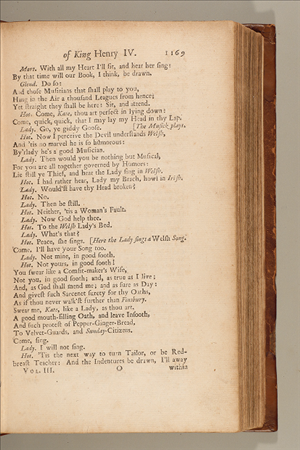 of King Henry IV. 1169
Mort. With all my Heart I'll sit, and hear her sing:
By that time will our Book, I think, be drawn.
Glend. Do so:
And those Musicians that shall play to you,
Hang in the Air a thousand Leagues from hence;
Yet straight they shall be here: Sit, and attend.
Hot. Come, Kate, thou art perfect in lying down:
Come, quick, quick, that I may lay my Head in thy Lap.
Lady. Go, ye giddy Goose. [The Musick plays.
Hot. Now I perceive the Devil understands Welsh,
And 'tis no marvel he is so humorous:
By'rlady he's a good Musician.
Lady. Then would you be nothing but Musical,
For you are all together govern'd by Humors:
Lie still ye Thief, and hear the Lady sing in Welsh.
Hot. I had rather hear, Lady my Brach, howl in Irish.
Lady. Would'st have thy Head broken?
Hot. No.
Lady. Then be still.
Hot. Neither, 'tis a Woman's Fault.
Lady. Now God help thee.
Hot. To the Welsh Lady's Bed.
Lady. What's that?
Hot. Peace, she sings. [Here the Lady sings a Welsh Song.
Come, I'll have your Song too.
Lady. Not mine, in good sooth.
Hot. Not yours, in good sooth!
You swear like a Comfit-maker's Wife,
Not you, in good sooth; and, as true as I live;
And, as God shall mend me; and as sure as Day:
And givest such Sarcenet surety for thy Oaths,
As if thou never walk'st further than Finsbury.
Swear me, Kate, like a Lady, as thou art,
A good mouth-filling Oath, and leave Insooth,
And such protest of Pepper-Ginger-Bread,
To Velvet-Guards, and Sunday-Citizens.
Come, sing.
Lady. I will not sing.
Hot. 'Tis the next way to turn Tailor, or be Red-
breast Teacher: And the Indentures be drawn, I'll away
VOL. III. O within